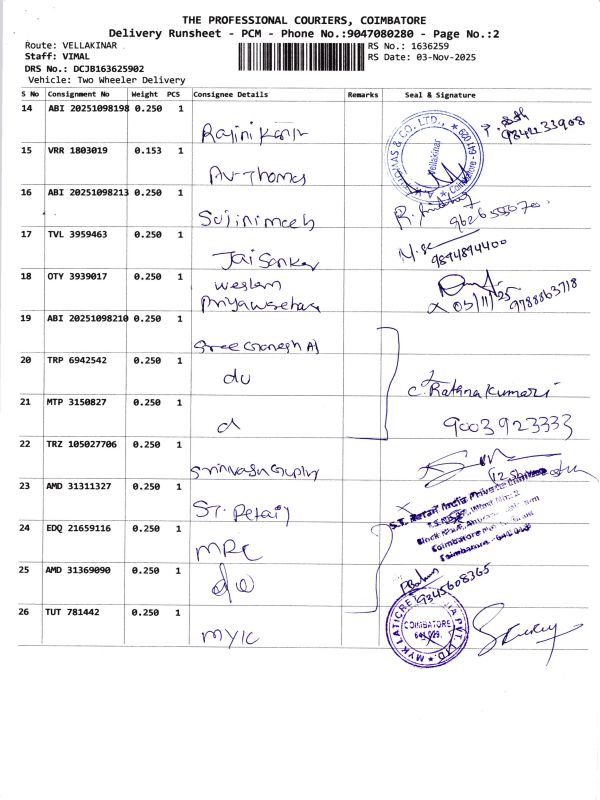 THE PROFESSIONAL COURIERS, COIMBATORE
Delivery Runsheet - PCM - Phone No.:9047080280 - Page No.:2
Route: VELLAKINAR
RS No.: 1636259
Staff: VIMAL
RS Date: 03-Nov-2025
DRS No.: DCJB163625902
Vehicle: Two Wheeler Delivery
S No Consignment No Weight PCS Consignee Details Remarks Seal & Signature
14 ABI 20251098198 0.250 1
Rajini Kanth
9842233908
15 VRR 1803019 0.153 1
AV-Thomas
THOMAS & CO. LTD.,
Vellakinar
Coimbatore - 641 029
16 ABI 20251098213 0.250 1
9626555070
17 TVL 3959463 0.250 1
Jai Sankar
9894894400
18 OTY 3939017 0.250 1
Western
03/11/25
9788863718
19 ABI 20251098210 0.250 1
Sree Ganesh A
20 TRP 6942542 0.250 1
du
21 MTP 3150827 0.250 1
d
C. Ratna Kumari
9003923333
22 TRZ 105027706 0.250 1
23 AMD 31311327 0.250 1
ST. Retail
S.T. Retail India Private Limited
24 EDQ 21659116 0.250 1
MRC
Coimbatore
25 AMD 31369090 0.250 1
do
9345608365
26 TUT 781442 0.250 1
MYK
MYK LATICRETE INDIA PVT. LTD.
COIMBATORE
641 029